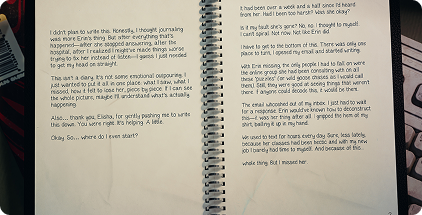 I didn't plan to write this. Honestly, I thought journaling
was more Erin's thing. But after everything that's
happened—after she stopped answering, after the
hospital, after I realized I might've made things worse
trying to fix her instead of listen—I guess I just needed
to get my head on straight.
This isn't a diary. It's not some emotional outpouring. I
just wanted to put it all in one place: what I saw, what I
missed, how it felt to lose her, piece by piece. If I can see
the whole picture, maybe I'll understand what's actually
happening.
Also... thank you, Elisha, for gently pushing me to write
this down. You were right. It's helping. A little.
Okay. So... where do I even start?
It had been over a week and a half since I'd heard
from her. Had I been too harsh? Was she okay?
Is it my fault she's gone? No, no. I thought to myself.
I can't spiral. Not now. Not like Erin did.
I have to get to the bottom of this. There was only one
place to turn. I opened my email and started writing.
With Erin missing, the only people I had to fall on were
the online group she had been consulting with on all
these "puzzles" (or wild goose chases as I would call
them). Still, they were good at seeing things that weren't
there. If anyone could decode this, it would be them.
The email whooshed out of my inbox. I just had to wait
for a response. Erin would've known how to deconstruct
this—it was her thing after all. I gripped the hem of my
shirt, balling it up in my hand.
We used to text for hours every day. Sure, less lately,
because her classes had been hectic and with my new
job I barely had time to myself. And because of this...
whole thing. But I missed her.